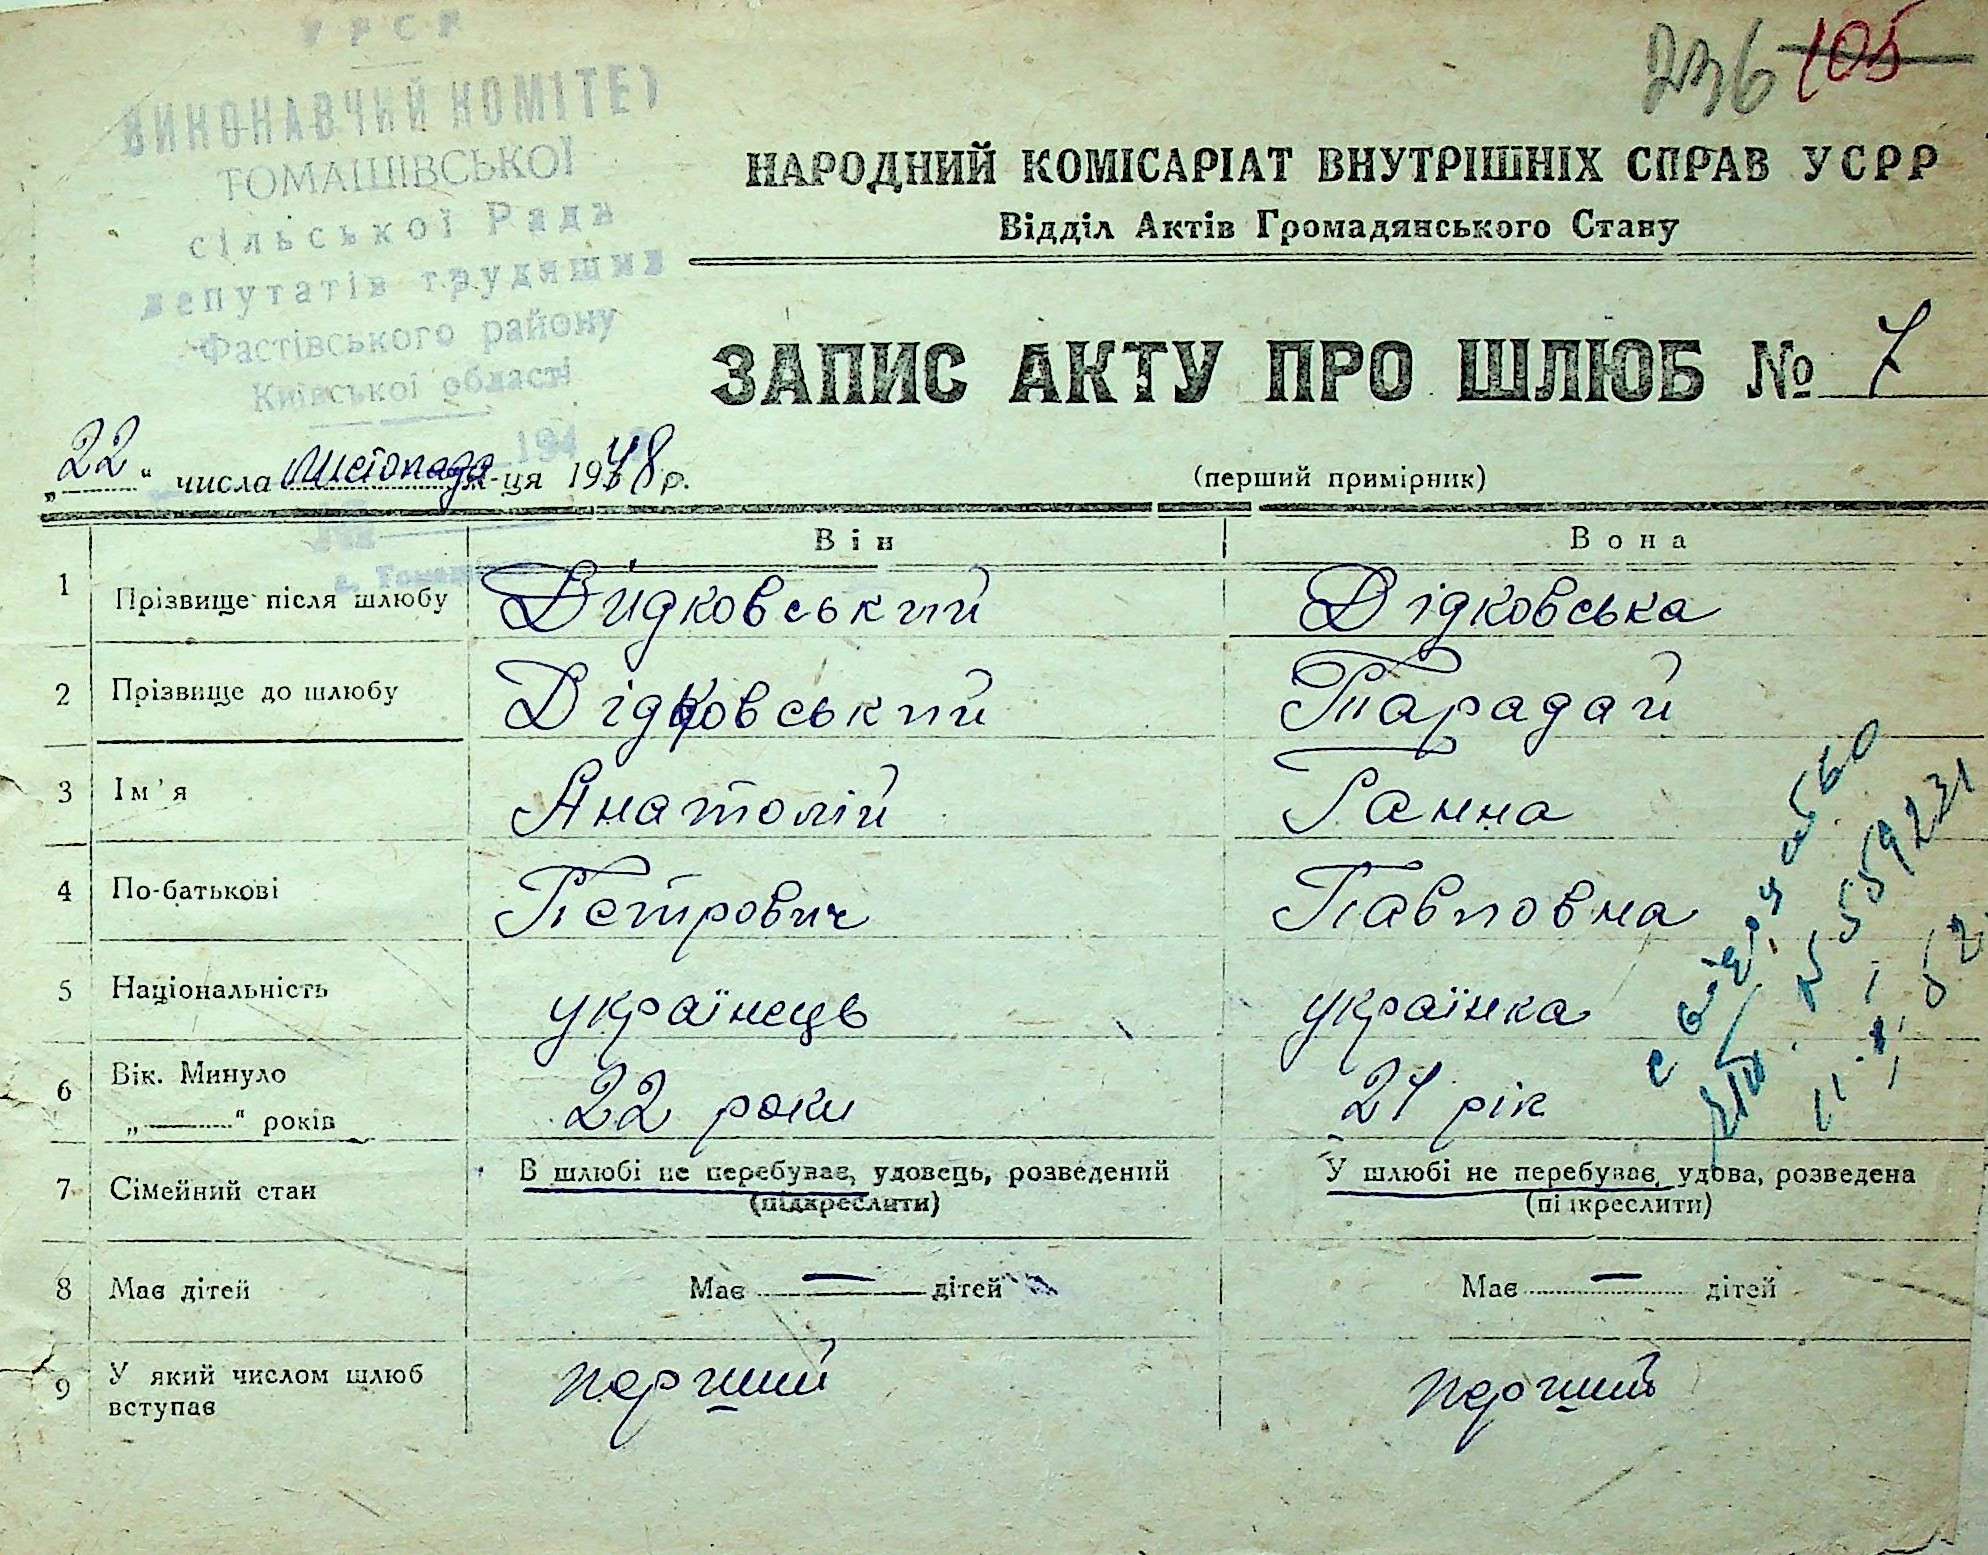 УРСР
ВИКОНАВЧИЙ КОМІТЕТ
ТОМАШІВСЬКОЇ
сільської Ради
депутатів трудящих
Фастівського району
Київської області
194
236 105
НАРОДНИЙ КОМІСАРІАТ ВНУТРІШНІХ СПРАВ УСРР
Відділ Актів Громадянського Стану
ЗАПИС АКТУ ПРО ШЛЮБ № 7
„22“ числа листопада м-ця 1948 р.
(перший примірник)
Він Вона
1 Прізвище після шлюбу Дідковський Дідковська
2 Прізвище до шлюбу Дідковський Тарадай
3 Ім'я Анатолій Ганна
4 По-батькові Петрович Павловна
5 Національність українець українка
6 Вік. Минуло „ “ років 22 роки 21 рік
7 Сімейний стан В шлюбі не перебуває, удовець, розведений (підкреслити) У шлюбі не перебуває, удова, розведена (підкреслити)
8 Має дітей Має — дітей Має — дітей
9 У який числом шлюб вступає перший перший
559231